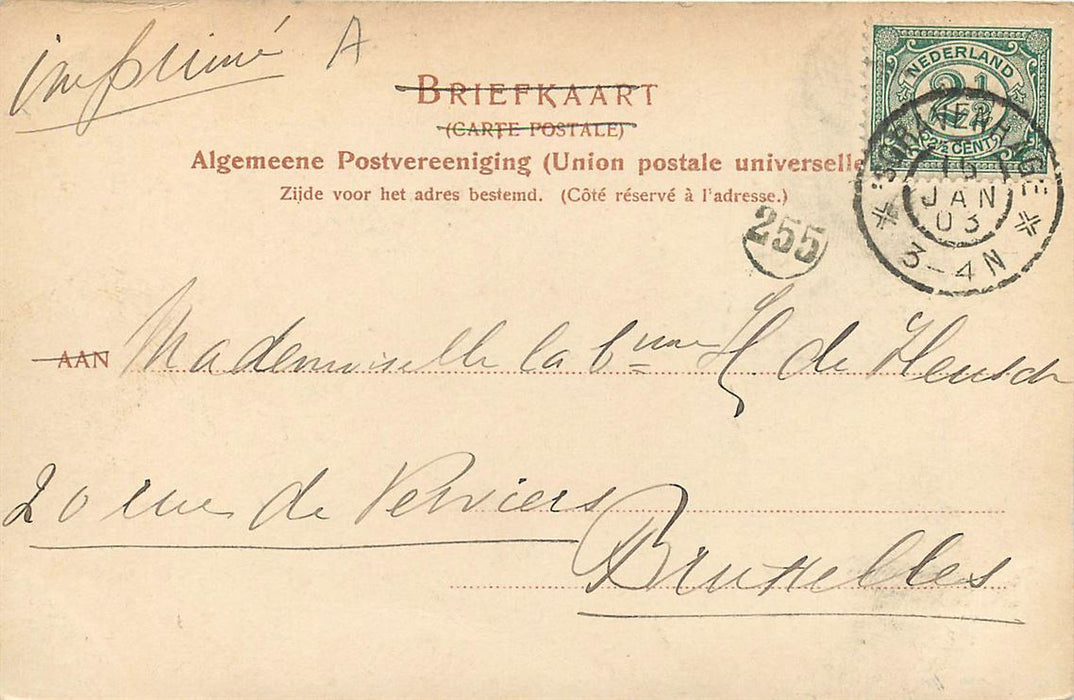 imprimé A
NEDERLAND
2½
2½ CENT
'SGRAVENHAGE
15
JAN
03
3-4N
BRIEFKAART
(CARTE POSTALE)
Algemeene Postvereeniging (Union postale universelle
Zijde voor het adres bestemd. (Côté réservé à l'adresse.)
255
AAN Mademoiselle la bnne H. de Heusch
20 rue de Verviers
Bruxelles